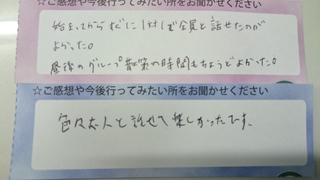 ☆ご感想や今後行ってみたい所をお聞かせください
始まってからすぐに1対1で全員と話せたのが
よかった。
最後のグループ散策の時間もちょうどよかった。
☆ご感想や今後行ってみたい所をお聞かせください
色々な人と話せて楽しかったです。